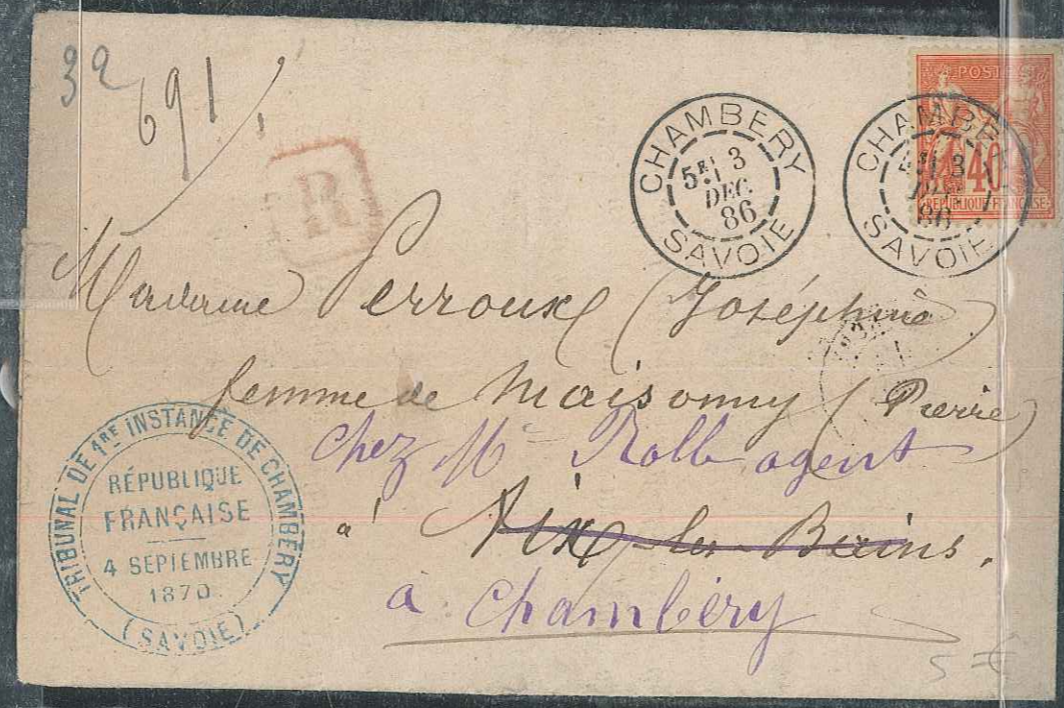 32
691
R
CHAMBERY
5E 3
DEC
86
SAVOIE
CHAMBERY
3
DEC
86
SAVOIE
POSTE
40
REPUBLIQUE FRANÇAISE
Madame Perroux (Joséphine)
femme de Maisonny (Pierre)
chez Mr Rolle agent
à Aix-les-Bains.
à Chambéry
TRIBUNAL DE 1RE INSTANCE DE CHAMBÉRY
RÉPUBLIQUE
FRANÇAISE
4 SEPTEMBRE
1870
(SAVOIE)
5 €